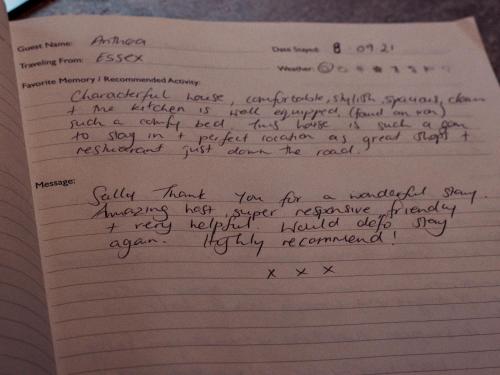 Guest Name: Anthea
Date Stayed: 8 . 09 21
Traveling From: ESSEX
Weather:
Favorite Memory / Recommended Activity:
Characterful house, comfortable, stylish, spacious, clean
+ the kitchen is well equipped,
such a comfy bed This house is such a gem
to stay in + perfect location as great shops +
restuarant just down the road.
Message:
Sally Thank you for a wonderful stay.
Amazing host, super responsive, friendly
+ very helpful. Would defo stay
again. Highly recommend!
x x x